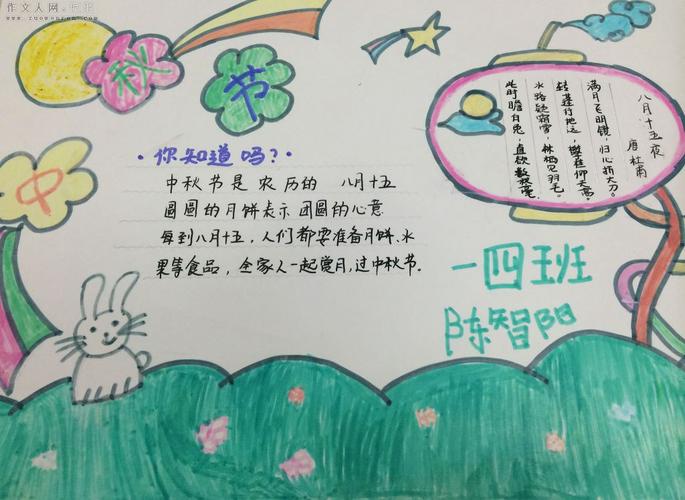 作文人网
中
秋
节
·你知道吗？·
中秋节是农历的 八月十五
圆圆的月饼表示团圆的心意
每到八月十五，人们都要准备月饼、水
果等食品，全家人一起赏月,过中秋节.
八月十五夜
唐 杜甫
满月飞明镜，归心折大刀。
转蓬行地远，攀桂仰天高。
水路疑霜雪，林栖见羽毛。
此时瞻白兔，直欲数秋毫。
一四班
陈智阳